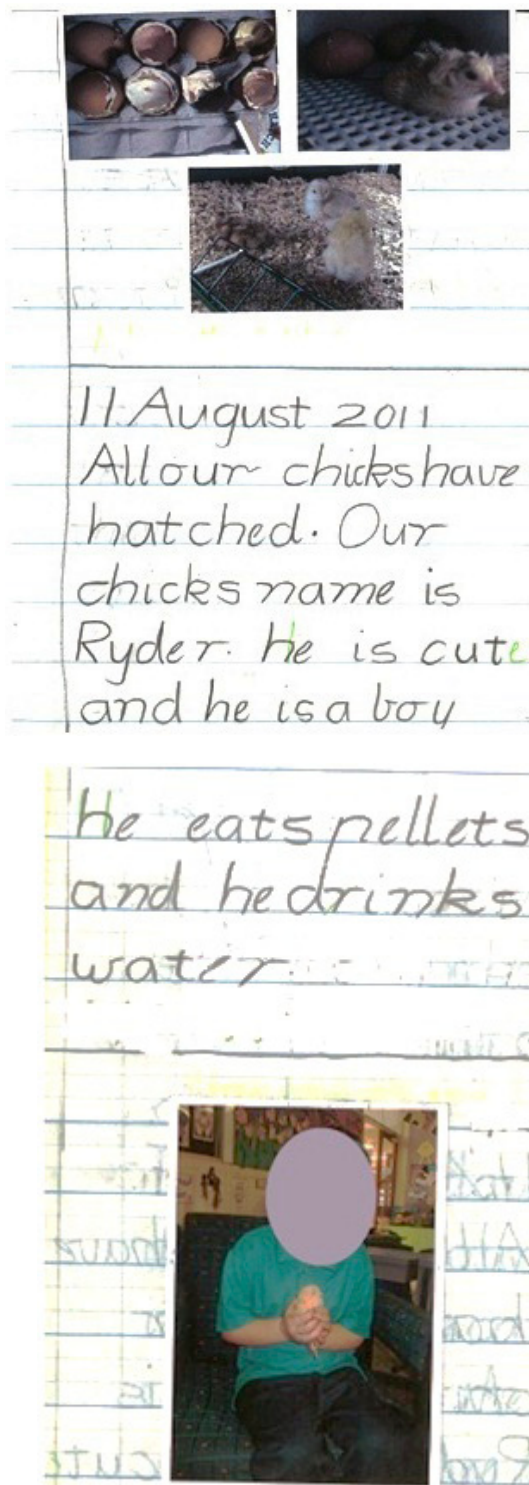 11 August 2011
All our chicks have
hatched. Our
chicks name is
Ryder. He is cute
and he is a boy
He eats pellets
and he drinks
water